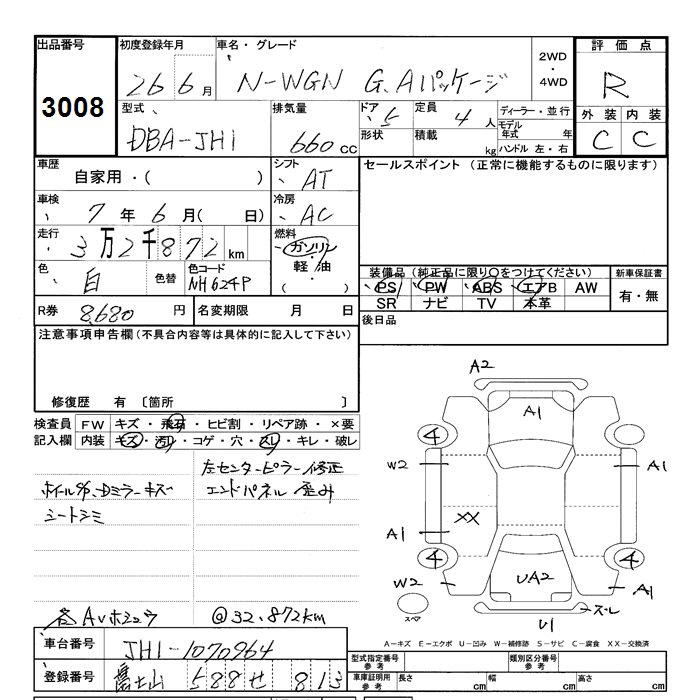 出品番号 初度登録年月 車名・グレード 評価点
3008
26 6月 N-WGN G.Aパッケージ 2WD・4WD R
型式 排気量 ドア 5 定員 4人 ディーラー・並行 外装 内装
DBA-JH1 660cc 形状 積載 kg モデル年式 年 ハンドル 左・右 C C
車歴 シフト セールスポイント (正常に機能するものに限ります)
自家用・( ) AT
車検 冷房
7年6月(日) AC
走行 燃料
3万2千872km ガソリン
軽・油
( )
色 白 色替 色コード NH624P
装備品(純正品に限り○をつけてください) 新車保証書
PS PW ABS エアB AW 有・無
SR ナビ TV 本革
R券 8,680円 名変期限 月 日 後日品
注意事項申告欄(不具合内容等は具体的に記入して下さい)
修復歴 有 〔箇所 〕
検査員 FW キズ・飛石・ヒビ割・リペア跡・×要
記入欄 内装 キズ・汚れ・コゲ・穴・スレ・キレ・破レ
左センターピラー修正
ホイルキズ、Dミラーキズ エンドパネル歪み
シートシミ
@32,872km
A2
A1
4
W2 A1
XX
A1
4 4
W2 UA2 A1
スペア U1 ズレ
A-キズ E-エクボ U-凹み W-補修跡 S-サビ C-腐食 XX-交換済
車台番号 JH1-1070964
登録番号 富士山 588 せ 813
型式指定番号 参考 類別区分番号 参考
車庫証明用 参考 長さ cm 幅 cm 高さ cm